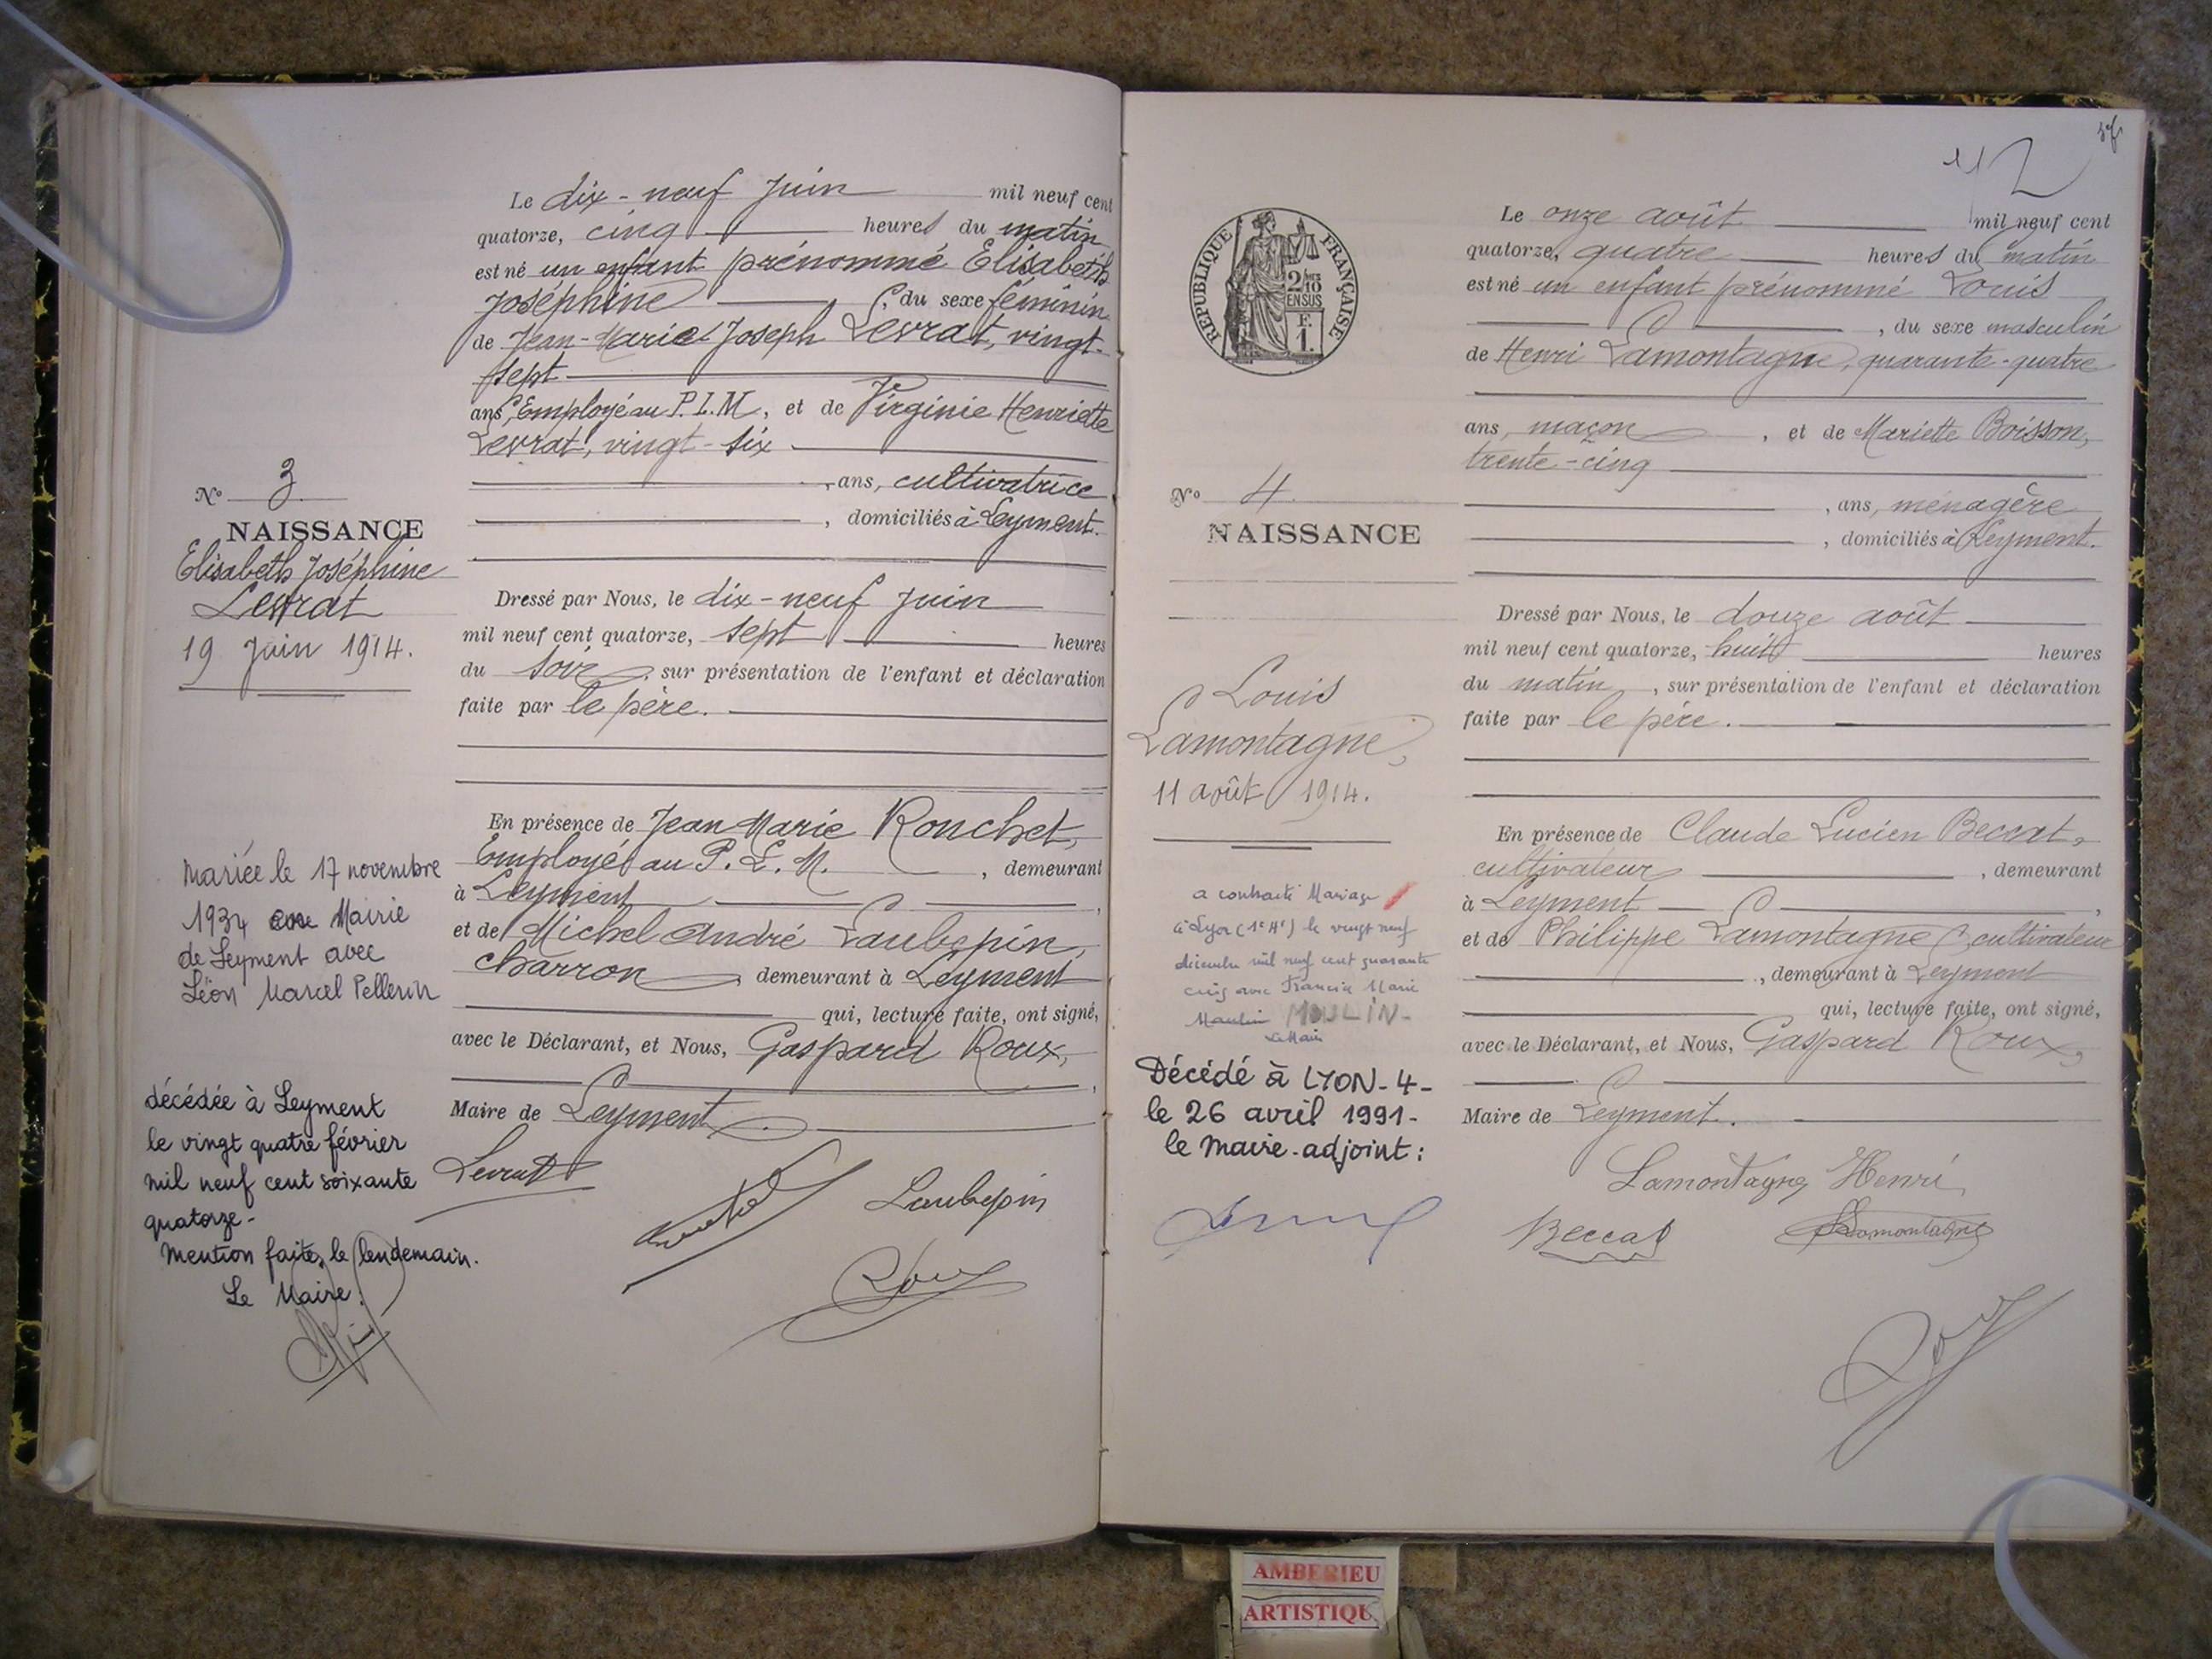 Le dix-neuf Juin mil neuf cent
quatorze, cinq heures du matin
est né un enfant prénommé Elisabeth
Joséphine, du sexe féminin
de Jean-Marie Joseph Levrat, vingt-
sept
ans, Employé au P.L.M, et de Virginie Henriette
Levrat, vingt-six
ans, cultivatrice
, domiciliés à Leyment.
No 3
NAISSANCE
Elisabeth Joséphine
Levrat
19 Juin 1914.
Dressé par Nous, le dix-neuf Juin
mil neuf cent quatorze, sept heures
du soir, sur présentation de l'enfant et déclaration
faite par le père.
En présence de Jean Marie Ronchet,
Employé au P.L.M., demeurant
à Leyment,
et de Michel André Laubepin,
charron demeurant à Leyment
qui, lecture faite, ont signé,
avec le Déclarant, et Nous, Gaspard Roux,
Maire de Leyment
Mariée le 17 novembre
1934 Mairie
de Leyment avec
Léon Marcel Pellerin
décédée à Leyment
le vingt quatre février
mil neuf cent soixante
quatorze-
Mention faite, le lendemain.
Le Maire.
Levrat
Laubepin
Roux
12
REPUBLIQUE FRANÇAISE
2/10
EN SUS
F.
1.
Le onze août mil neuf cent
quatorze, quatre heures du matin
est né un enfant prénommé Louis
, du sexe masculin
de Henri Lamontagne, quarante-quatre
ans, maçon, et de Mariette Boisson,
trente-cinq
, ans, ménagère
, domiciliés à Leyment.
No 4.
NAISSANCE
Louis
Lamontagne,
11 août 1914.
Dressé par Nous, le douze août
mil neuf cent quatorze, huit heures
du matin, sur présentation de l'enfant et déclaration
faite par le père.
En présence de Claude Lucien Beccat,
cultivateur, demeurant
à Leyment,
et de Philippe Lamontagne, cultivateur
, demeurant à Leyment
qui, lecture faite, ont signé,
avec le Déclarant, et Nous, Gaspard Roux,
Maire de Leyment.
a contracté Mariage
à Lyon (1er Art) le vingt neuf
décembre mil neuf cent quarante
cinq avec Francia Marie
Moulin MOULIN-
Le Maire
Décédé à LYON-4-
le 26 avril 1991-
le Maire-adjoint:
Lamontagne Henri
Beccat
Lamontagne
AMBERIEU
ARTISTIQU